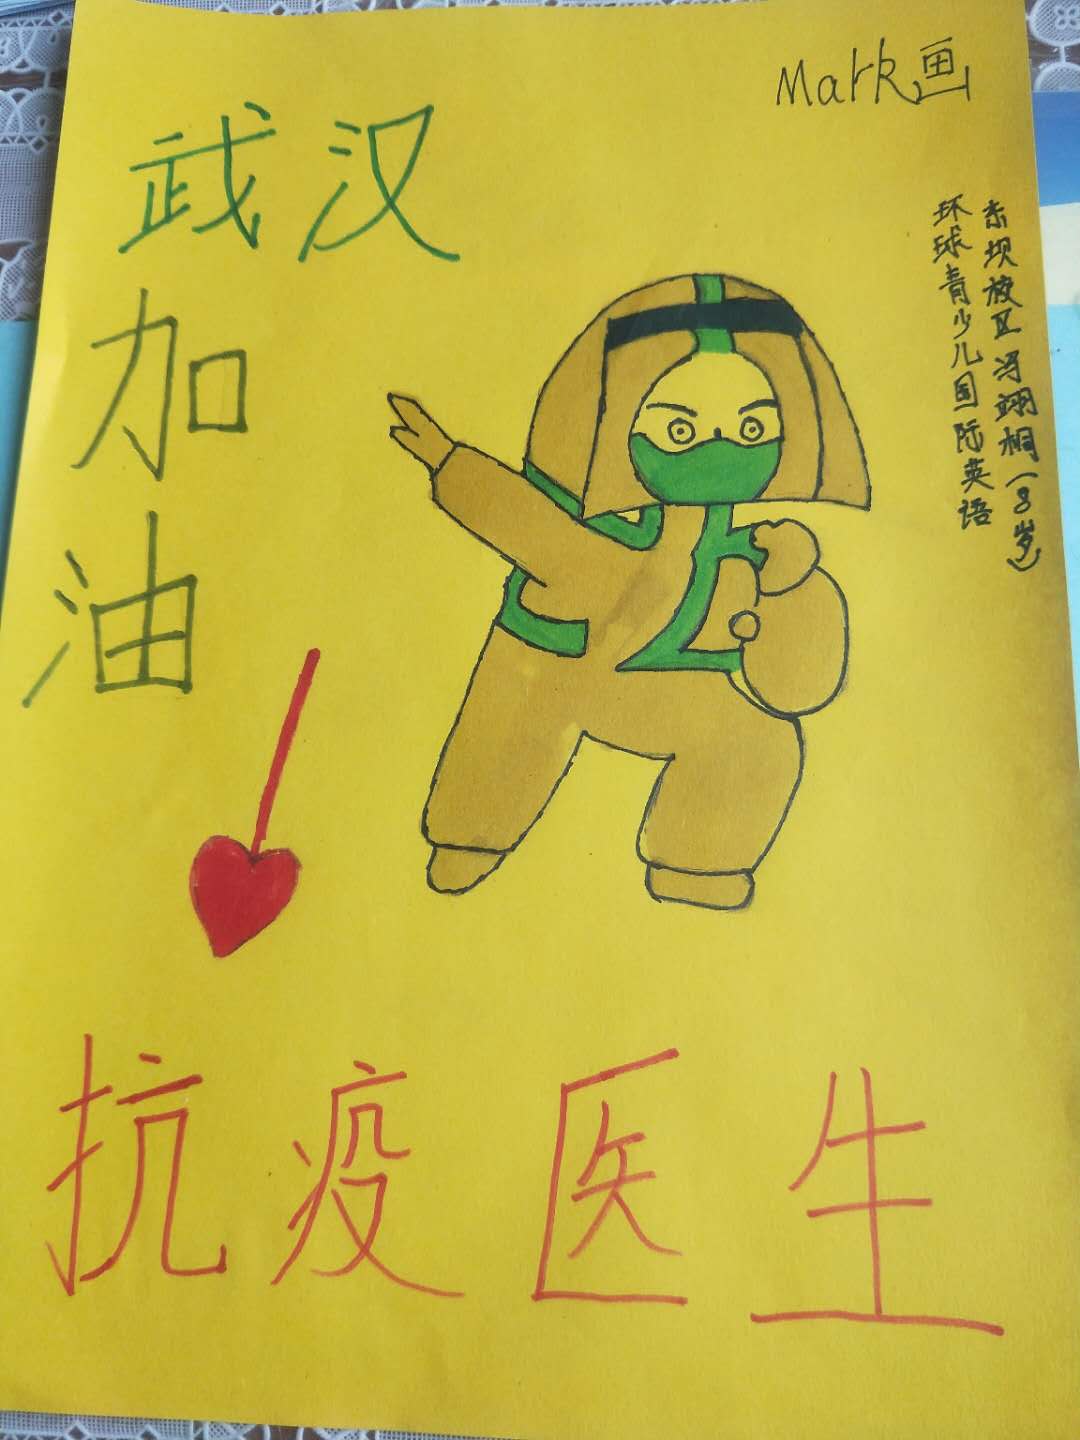 Mark画
武汉
加
油
东坝校区冯翊桐(8岁)
环球青少儿国际英语
抗疫医生